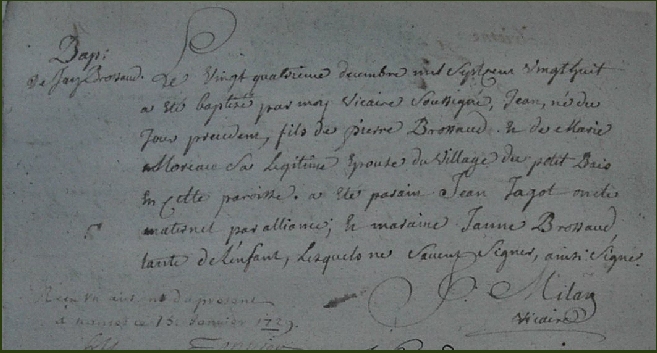 Bap:
de Jean Brossaud.
Le Vingt quatrieme decembre mil Sept cens Vingt huit
a eté baptisé par moy Vicaire Soussigné, Jean, né du
Jour precedent, fils de pierre Brossaud. & de Marie
Moreau Sa Legitime Epouse du Village du petit Bois
En cette paroisse. a eté parain Jean Jagot oncle
maternel par alliance; & maraine Janne Brossaud,
tante de L'enfant, Lesquels ne Savent Signer, ainsi Signé.
Milan
Vicaire
a ce 13e Janvier 1729.